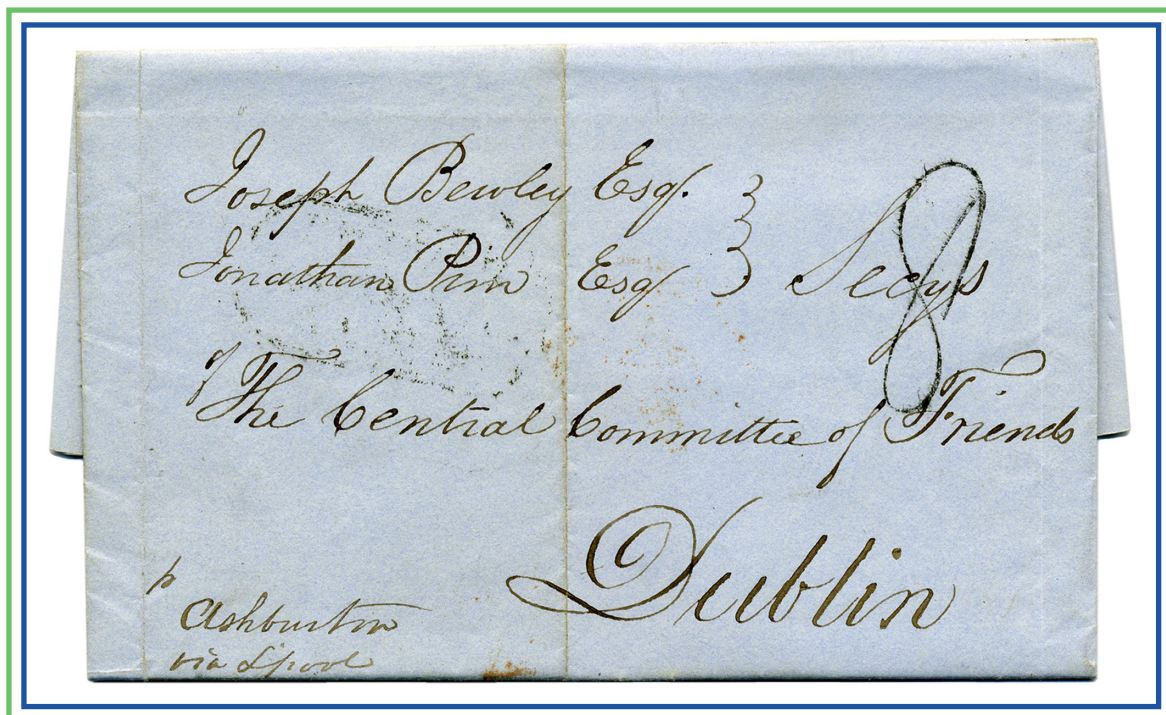 Joseph Bewley Esq.
Jonathan Pim Esq } Secys 8
of The Central Committee of Friends
Dublin
p Ashburton
via L'pool